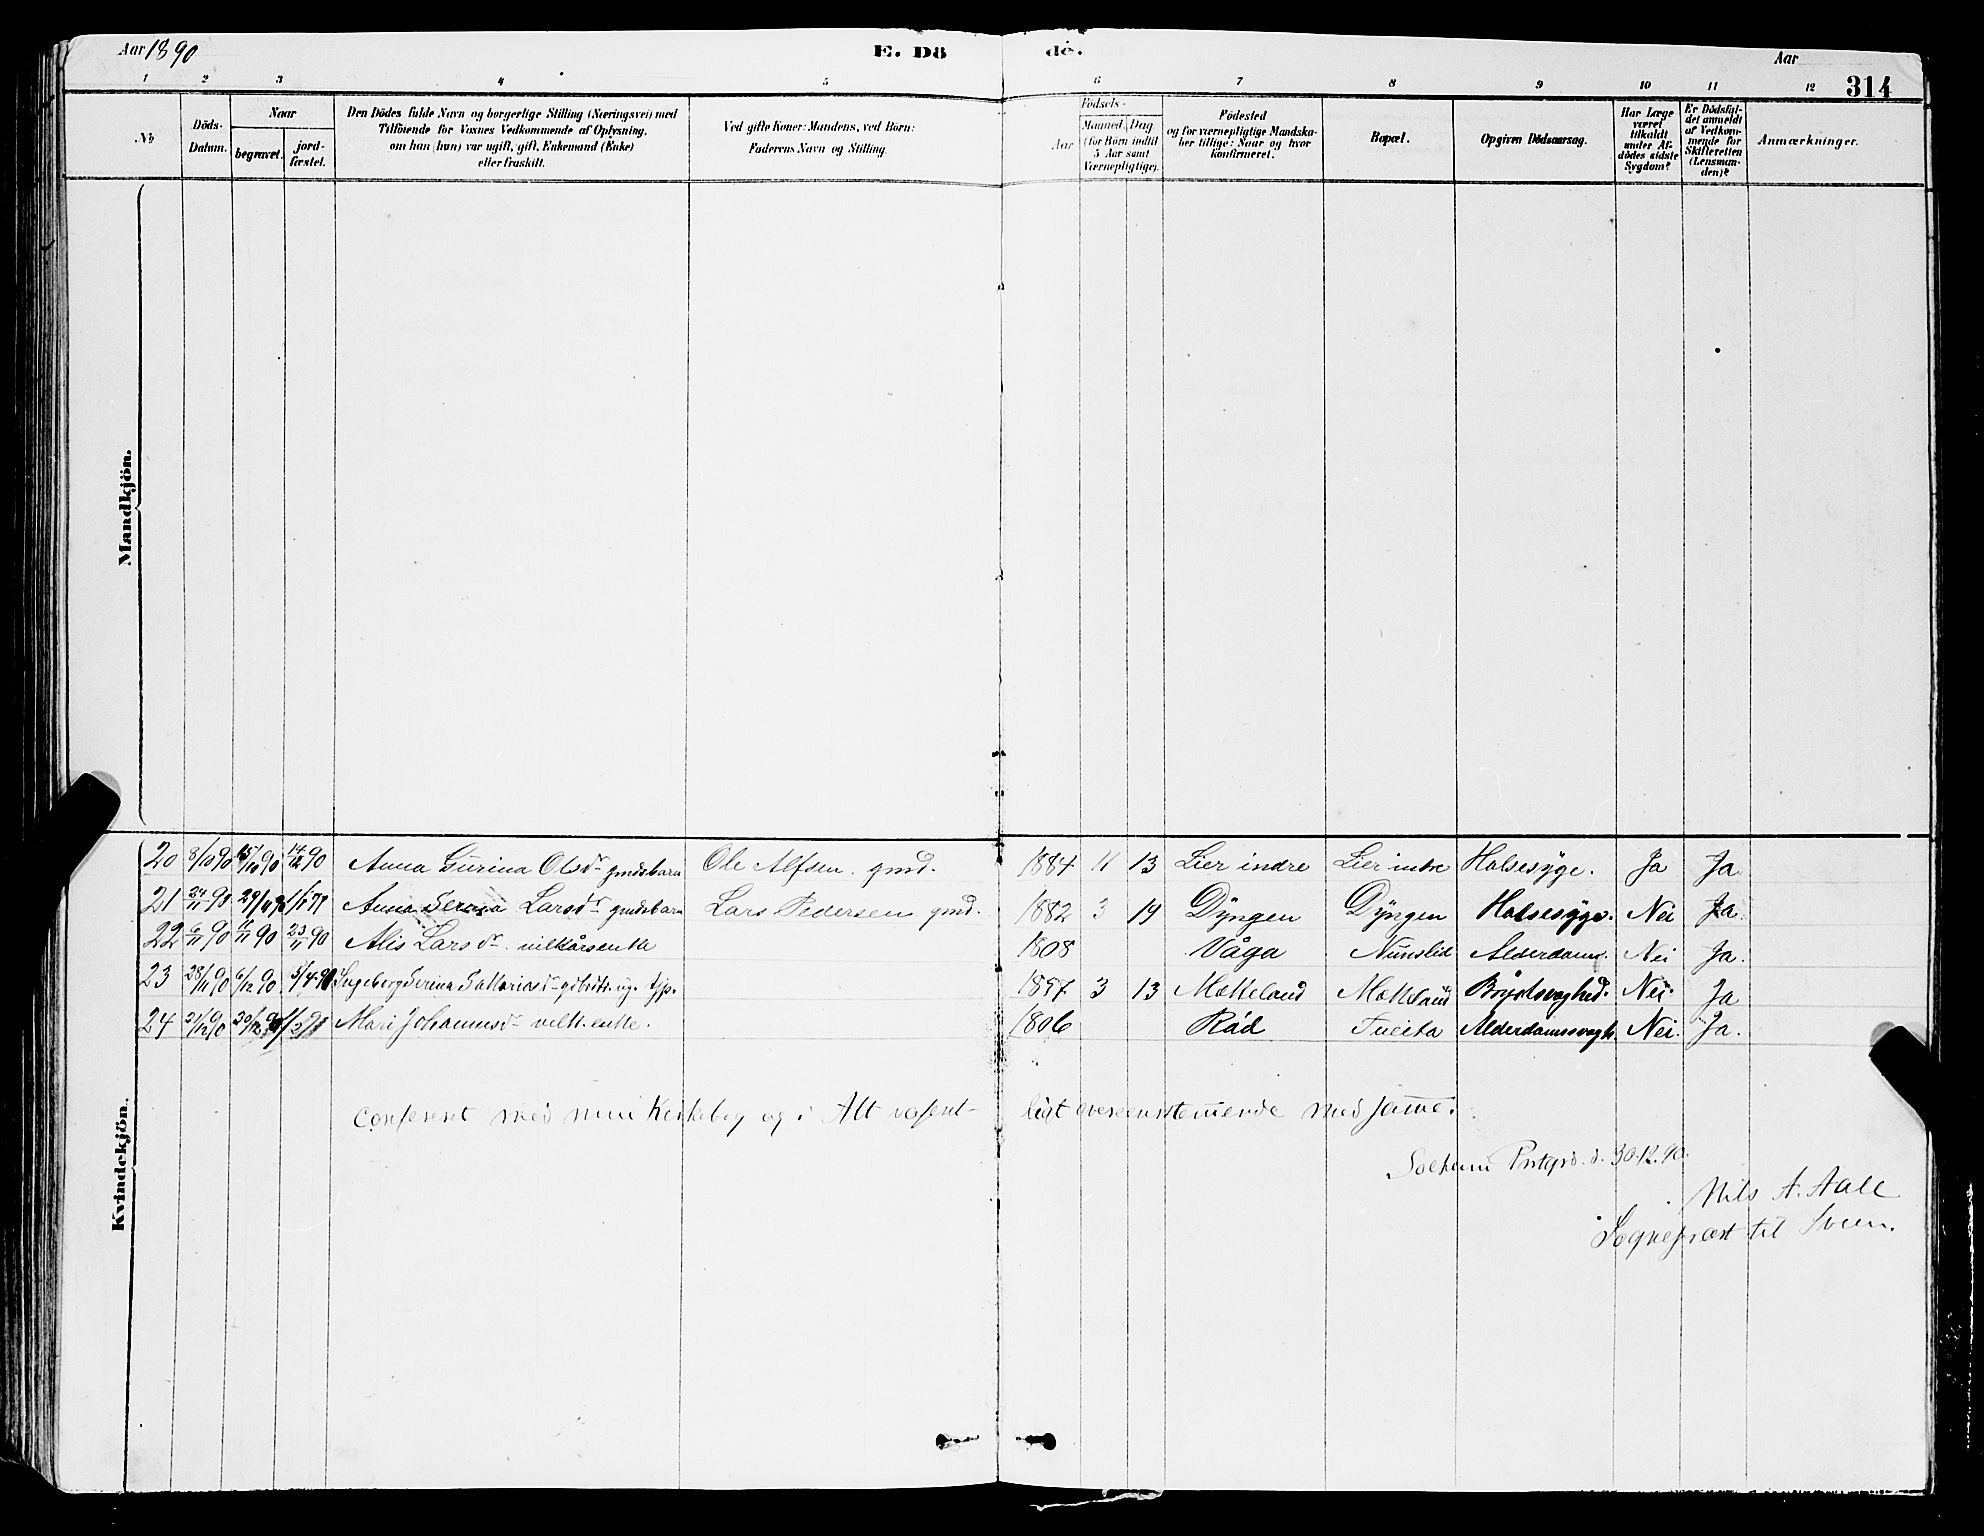 Aar 1890
E. Dö
de.
Aar
314
1 2 3 4 5 6 7 8 9 10 11 12
No
Döds-Datum.
Naar
begravet.
jord-fæstet.
Den Dödes fulde Navn og borgerlige Stilling (Næringsvei) med
Tilföiende for Voxnes Vedkommende af Oplysning,
om han (hun) var ugift, gift, Enkemand (Enke)
eller fraskilt.
Ved gifte Koner: Mandens, ved Börn:
Faderens Navn og Stilling.
Födsels-
Aar
Maaned. Dag
(for Börn indtil
5 Aar samt
Værnepligtige).
Födested
og for værnepligtige Mandska-
ber tillige: Naar og hvor
konfirmeret.
Bopæl.
Opgiven Dödsaarsag.
Har Læge
været
tilkaldt
under Af-
dödes sidste
Sygdom?
Er Dödsfal-
det anmeldt
af Vedkom-
mende for
Skifteretten
(Lensman-
den)?
Anmærkninger.
Mandkjön.
Kvindekjön.
20 8/10 90 15/10 90 14/12 90 Anna Gurina Olsdr gmdsbarn Ole Alfsen gmd. 1884 11 13 Lier indre Lier indre Halsesyge. Ja Ja
21 24/11 90 29/11 90 Anna Serina Larsdr gmdsbarn Lars Pedersen gmd. 1882 3 19 Dyngen Dyngen Halsesyge. Nei Ja.
22 6/11 90 11/11 90 23/11 90 Alis Larsdr vilkårsenke 1808 Våga Nunslid Alderdoms. Nei Ja.
23 28/11 90 6/12 90 5/4 91 Ingeborg Serina Sakariasdr 3 13 Mokeland Mokeland Brystsvaghed. Nei. Ja
24 21/12 90 30/12 90 Mari Johannesdr vilk. enke. 1806 Råd Tveita Alderdomssvagh. Nei. Ja.
Confereret med min Kirkebog og i Alt væsent-
ligt overensstemmende med samme.
Solheim Prstgrd. d. 30.12.90.
Nils A. Aall
Sognepræst til Sveen.